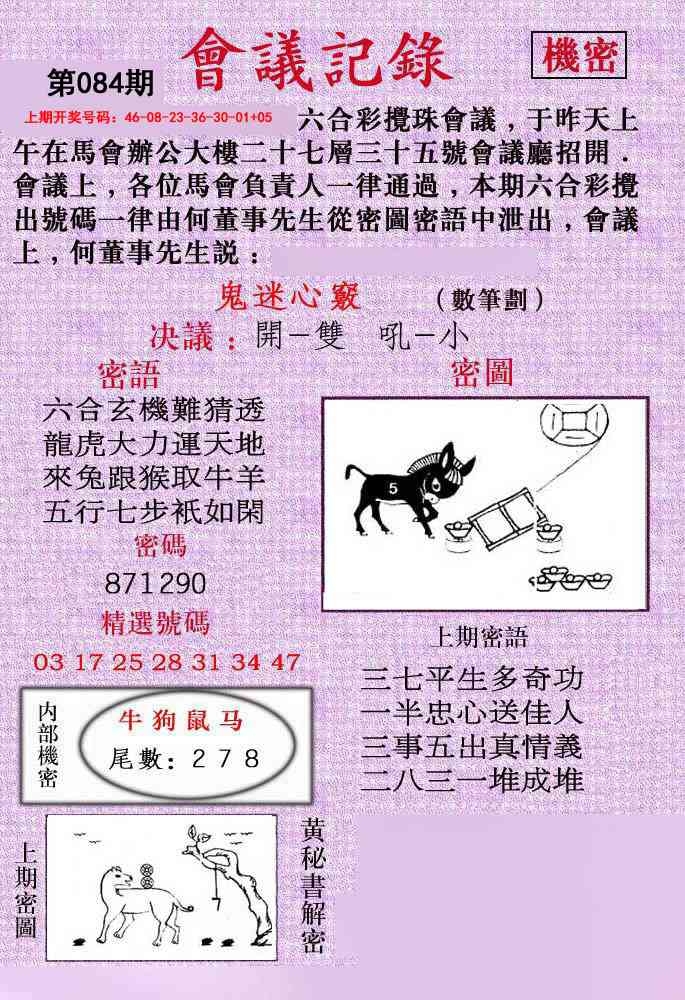 會議記錄
機密
第084期
上期开奖号码：46-08-23-36-30-01+05
六合彩攪珠會議，于昨天上
午在馬會辦公大樓二十七層三十五號會議廳招開．
會議上，各位馬會負責人一律通過，本期六合彩攪
出號碼一律由何董事先生從密圖密語中泄出，會議
上，何董事先生説：
鬼迷心竅
（數筆劃）
决議：開－雙 吼－小
密語
六合玄機難猜透
龍虎大力運天地
來兔跟猴取牛羊
五行七步衹如閑
密碼
871290
精選號碼
03 17 25 28 31 34 47
密圖
5
上期密語
三七平生多奇功
一半忠心送佳人
三事五出真情義
二八三一堆成堆
内部機密
牛狗鼠马
尾數：2 7 8
上期密圖
7
黄秘書解密